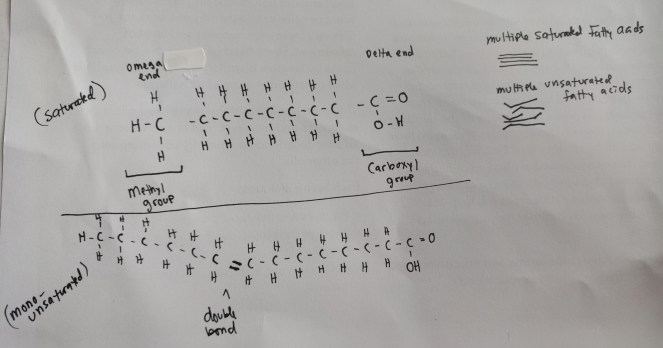 omega end
Delta end
(saturated)
H H H H H H H H
H-C -C-C-C-C-C-C-C -C=O
H H H H H H H H O-H
methyl group
Carboxyl group
multiple saturated fatty acids
multiple unsaturated
fatty acids
(mono-
unsaturated)
H H H H H H H H H H H H H
H-C-C-C-C-C-C=C-C-C-C-C-C-C-C=O
H H H H H H H H H H H H H OH
double
bond